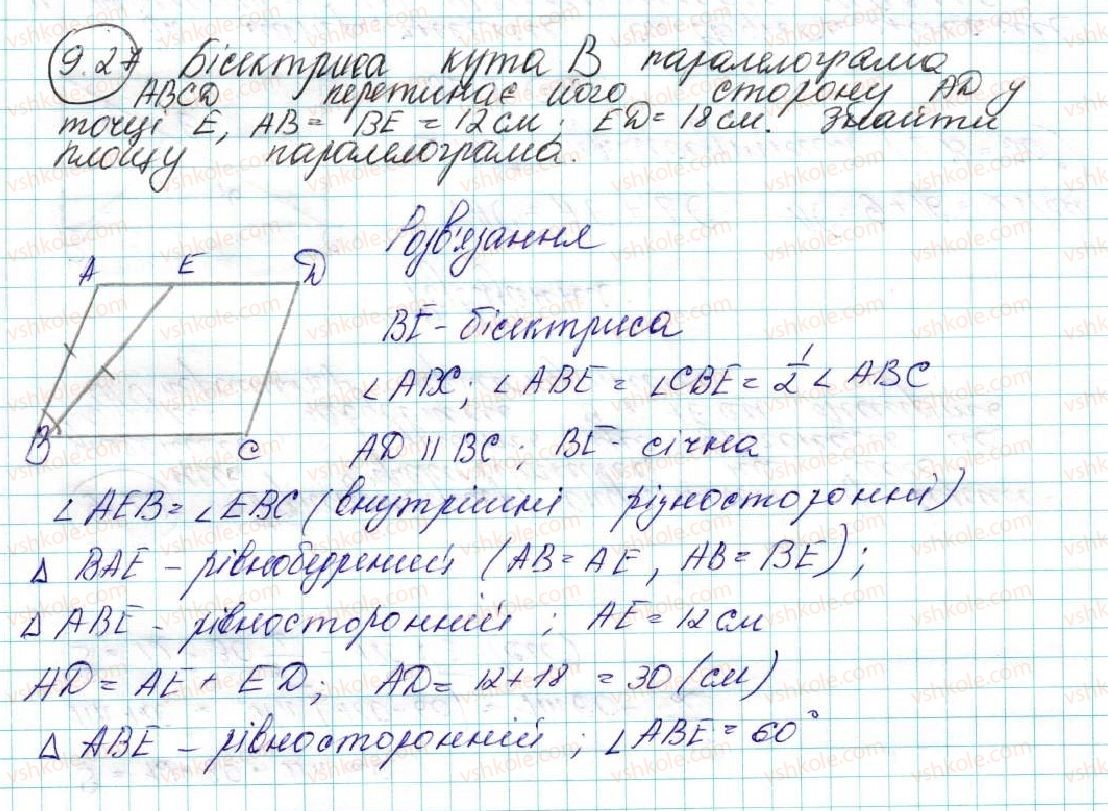 9.27 Бісектриса кута B паралелограма
ABCD перетинає його сторону AD у
точці E, AB = BE = 12 см; ED = 18 см. Знайти
площу паралелограма.
Розв'язання
A E D
BE - бісектриса
∠ABC; ∠ABE = ∠CBE = 1/2 ∠ABC
B C
AD || BC; BE - січна
∠AEB = ∠EBC (внутрішні різносторонні)
Δ BAE - рівнобедрений (AB = AE, AB = BE);
Δ ABE - рівносторонній; AE = 12 см
AD = AE + ED; AD = 12 + 18 = 30 (см)
Δ ABE - рівносторонній; ∠ABE = 60°